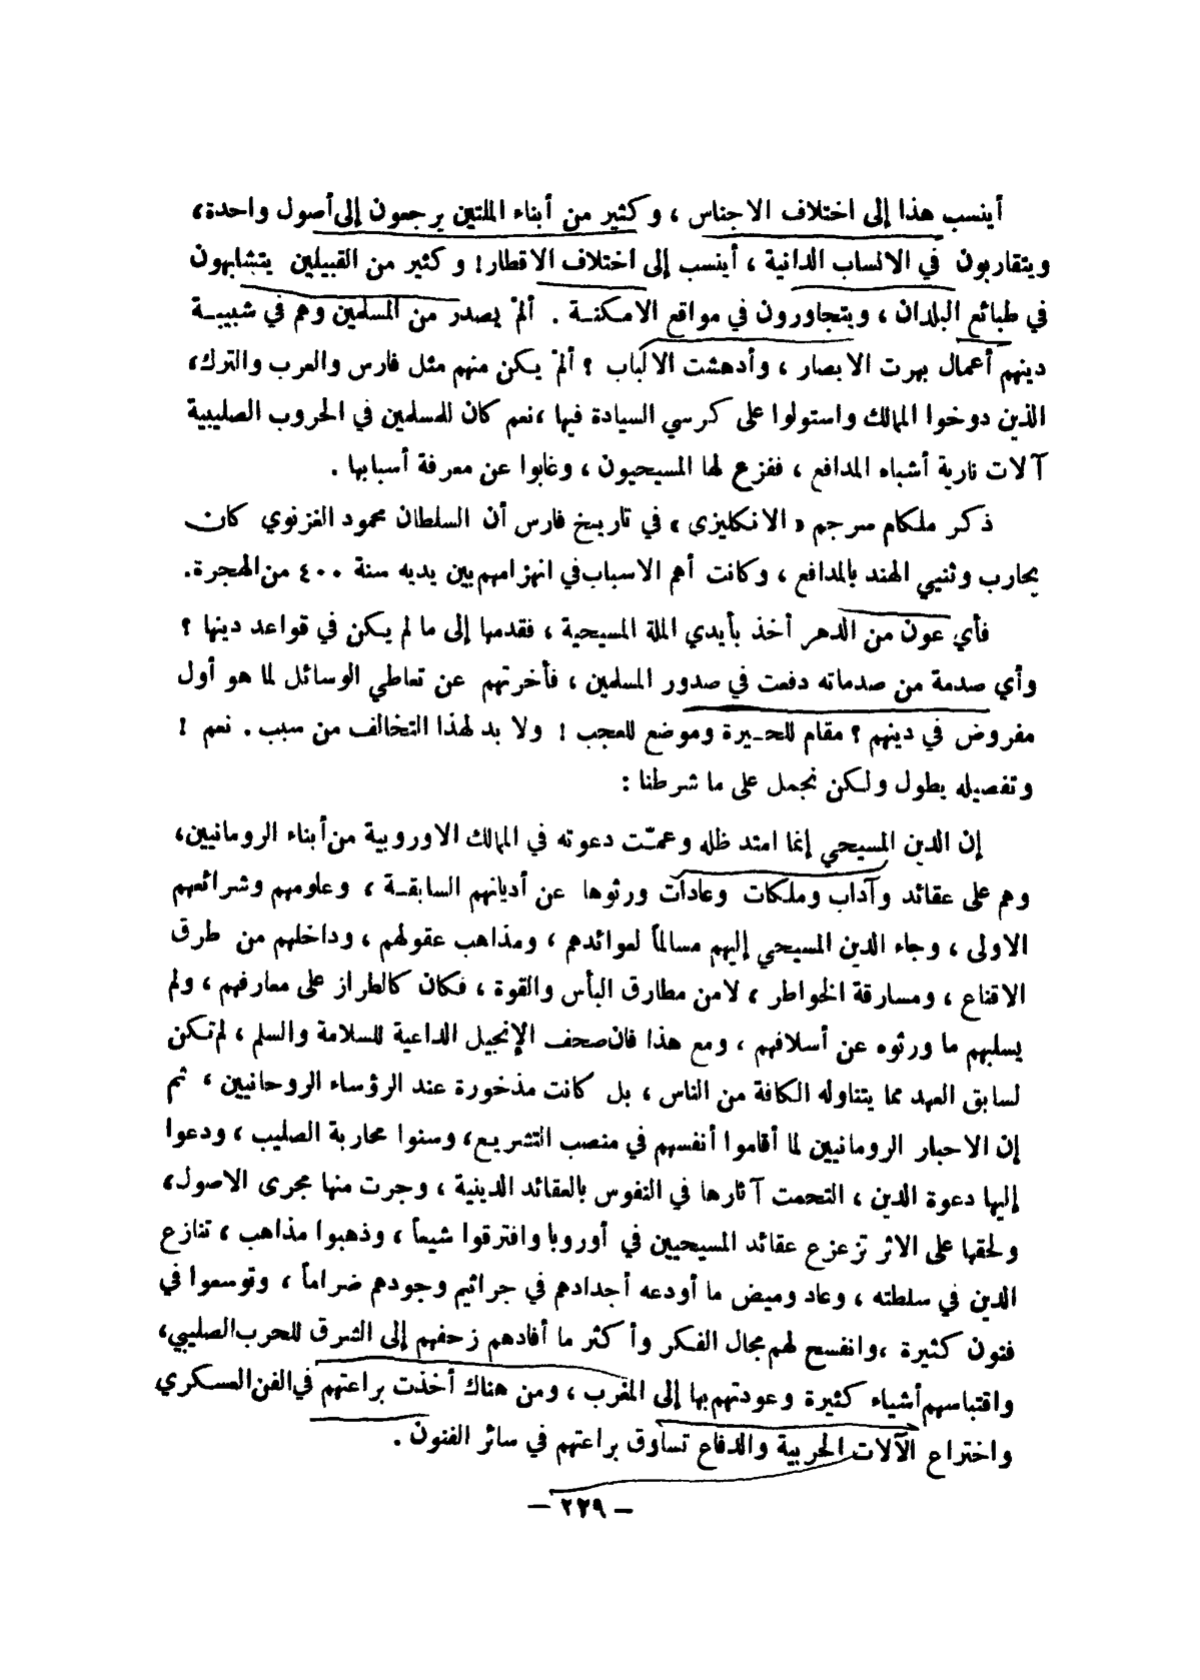 أينسب هذا إلى اختلاف الاجناس ، وكثير من أبناء الملتين يرجعون إلى أصول واحدة،
ويتقاربون في الانساب الدانية ، أينسب إلى اختلاف الاقطار! وكثير من القبيلين يتشابهون
في طبائع البلدان ، ويتجاورون في مواقع الامكنـة . ألمْ يصدر من المسلمين وهم في شبيبـة
دينهم أعمال بهرت الابصار ، وأدهشت الالباب ؟ ألمْ يكن منهم مثل فارس والعرب والترك،
الذين دوخوا الممالك واستولوا على كرسي السيادة فيها ،نعم كان للمسلمين في الحروب الصليبية
آلات نارية أشباه المدافع ، ففزع لها المسيحيون ، وغابوا عن معرفة أسبابها .
ذكر ملكام سرجم « الانكليزى » في تاريخ فارس أن السلطان محمود الغزنوي كان
يحارب وثنيي الهند بالمدافع ، وكانت أهم الاسباب في انهزامهم بين يديه سنة ٤٠٠ من الهجرة.
فأي عون من الدهر أخذ بأيدي الملة المسيحية ، فقدمها إلى ما لم يكن في قواعد دينها ؟
وأي صدمة من صدماته دفعت في صدور المسلمين ، فأخرتهم عن تعاطي الوسائل لما هو أول
مفروض في دينهم ؟ مقام للحـيرة وموضع للعجب ! ولا بد لهذا التخالف من سبب . نعم !
وتفصيله يطول ولكن نجمل على ما شرطنا :
إن الدين المسيحي إنما امتد ظله وعمّت دعوته في الممالك الاوروبية من أبناء الرومانيين،
وهم على عقائد وآداب وملكات وعادات ورثوها عن أديانهم السابقـة ، وعلومهم وشرائعهم
الاولى ، وجاء الدين المسيحي إليهم مسالماً لعوائدهم ، ومذاهب عقولهم ، وداخلهم من طرق
الاقناع ، ومسارقة الخواطر ، لامن مطارق البأس والقوة ، فكان كالطراز على معارفهم ، ولم
يسلبهم ما ورثوه عن أسلافهم ، ومع هذا فان صحف الإنجيل الداعية للسلامة والسلم ، لم تكن
لسابق العهد مما يتناوله الكافة من الناس ، بل كانت مذخورة عند الرؤساء الروحانيين ، ثم
إن الاحبار الرومانيين لما أقاموا أنفسهم في منصب التشريع، وسنوا محاربة الصليب ، ودعوا
إليها دعوة الدين ، التحمت آثارها في النفوس بالعقائد الدينية ، وجرت منها مجرى الاصول،
ولحقها على الاثر تزعزع عقائد المسيحيين في أوروبا وافترقوا شيعاً ، وذهبوا مذاهب ، تنازع
الدين في سلطته ، وعاد وميض ما أودعه أجدادهم في جراثيم وجودهم ضراماً ، وتوسعوا في
فنون كثيرة ،وانفسح لهم مجال الفكر وأكثر ما أفادهم زحفهم إلى الشرق للحرب الصليبي،
واقتباسهم أشياء كثيرة وعودتهم بها إلى المغرب ، ومن هناك أخذت براعتهم في الفن العسكري
واختراع الآلات الحربية والدفاع تساوق براعتهم في سائر الفنون .
— ٢٢٩ —